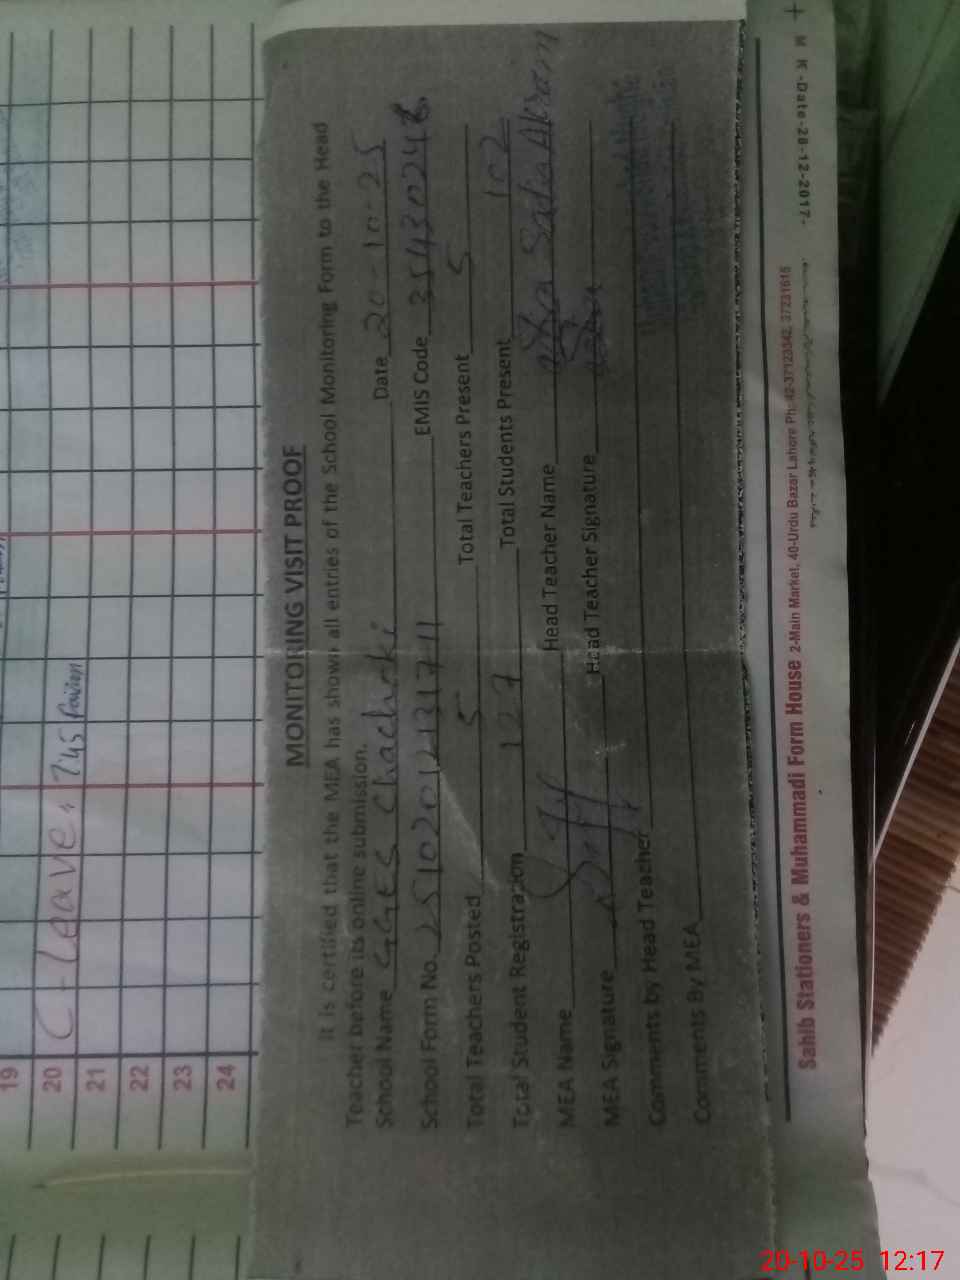 19
20 C-Leave, 7:45
21
22
23
24
MONITORING VISIT PROOF
It is certified that the MEA has shown all entries of the School Monitoring Form to the Head
Teacher before its online submission.
School Name GGES Chachoki Date 20-10-25
School Form No. EMIS Code
Total Teachers Posted 5 Total Teachers Present 5
Total Student Registration 127 Total Students Present 102
MEA Name Head Teacher Name Safia Akram
MEA Signature Head Teacher Signature
Comments by Head Teacher
Comments By MEA
Sahib Stationers & Muhammadi Form House 2-Main Market, 40-Urdu Bazar Lahore Ph: 42-37123542, 37231615
M K-Date-28-12-2017-
20-10-25 12:17